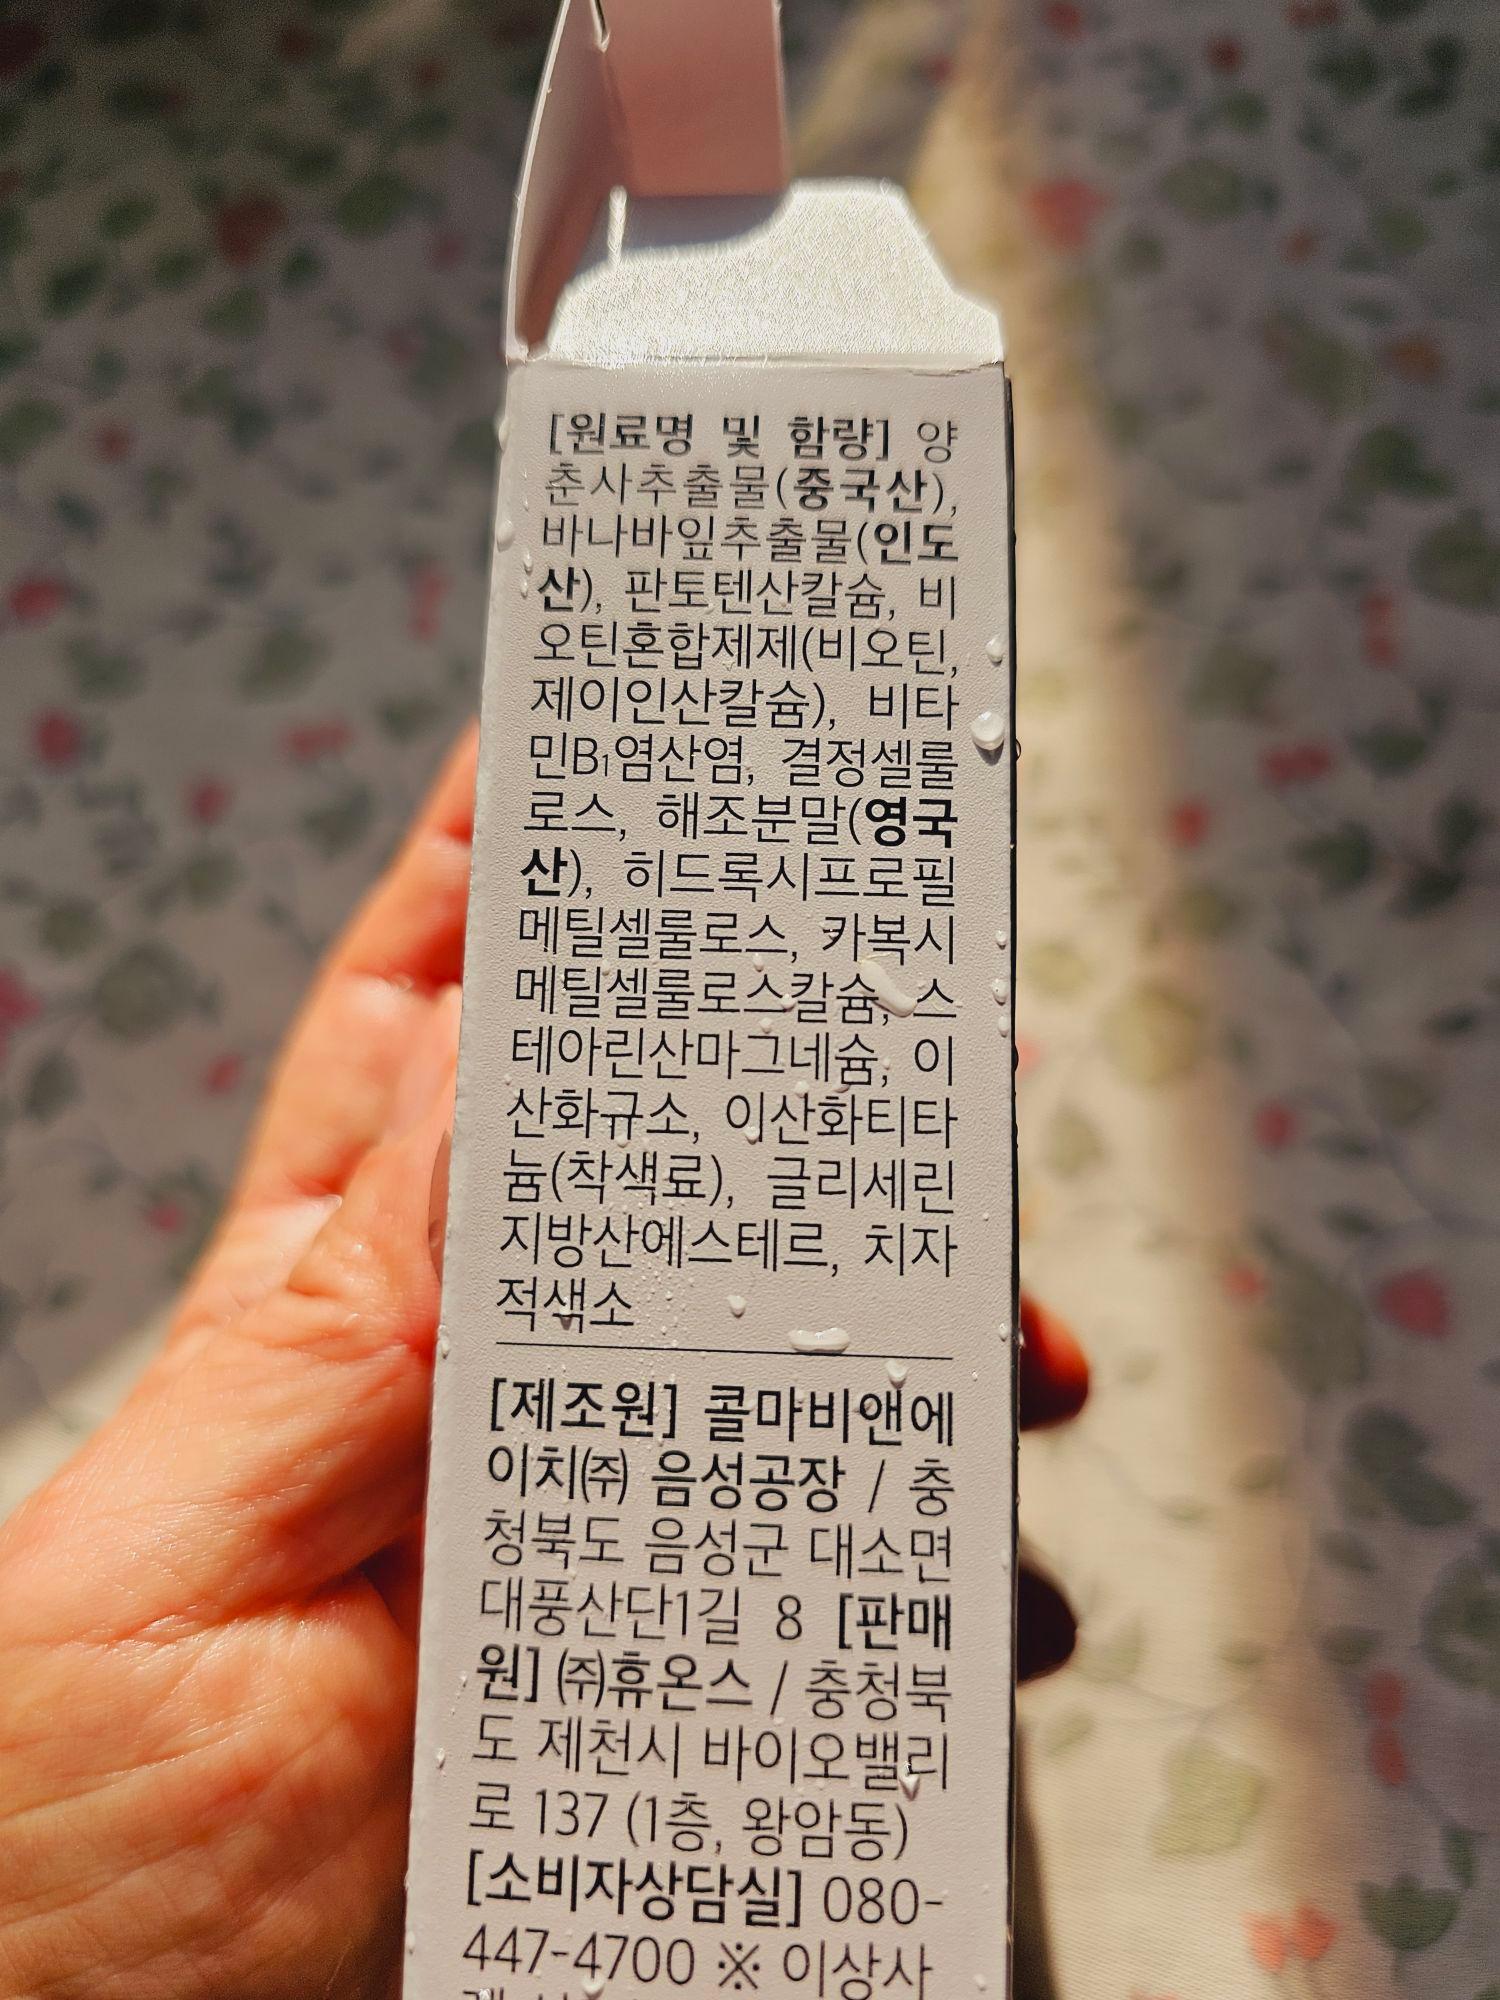 [원료명 및 함량] 양
춘사추출물(중국산),
바나바잎추출물(인도
산), 판토텐산칼슘, 비
오틴혼합제제(비오틴,
제이인산칼슘), 비타
민B₁염산염, 결정셀룰
로스, 해조분말(영국
산), 히드록시프로필
메틸셀룰로스, 카복시
메틸셀룰로스칼슘, 스
테아린산마그네슘, 이
산화규소, 이산화티타
늄(착색료), 글리세린
지방산에스테르, 치자
적색소
[제조원] 콜마비앤에
이치㈜ 음성공장 / 충
청북도 음성군 대소면
대풍산단1길 8 [판매
원] ㈜휴온스 / 충청북
도 제천시 바이오밸리
로 137 (1층, 왕암동)
[소비자상담실] 080-
447-4700 ※ 이상사